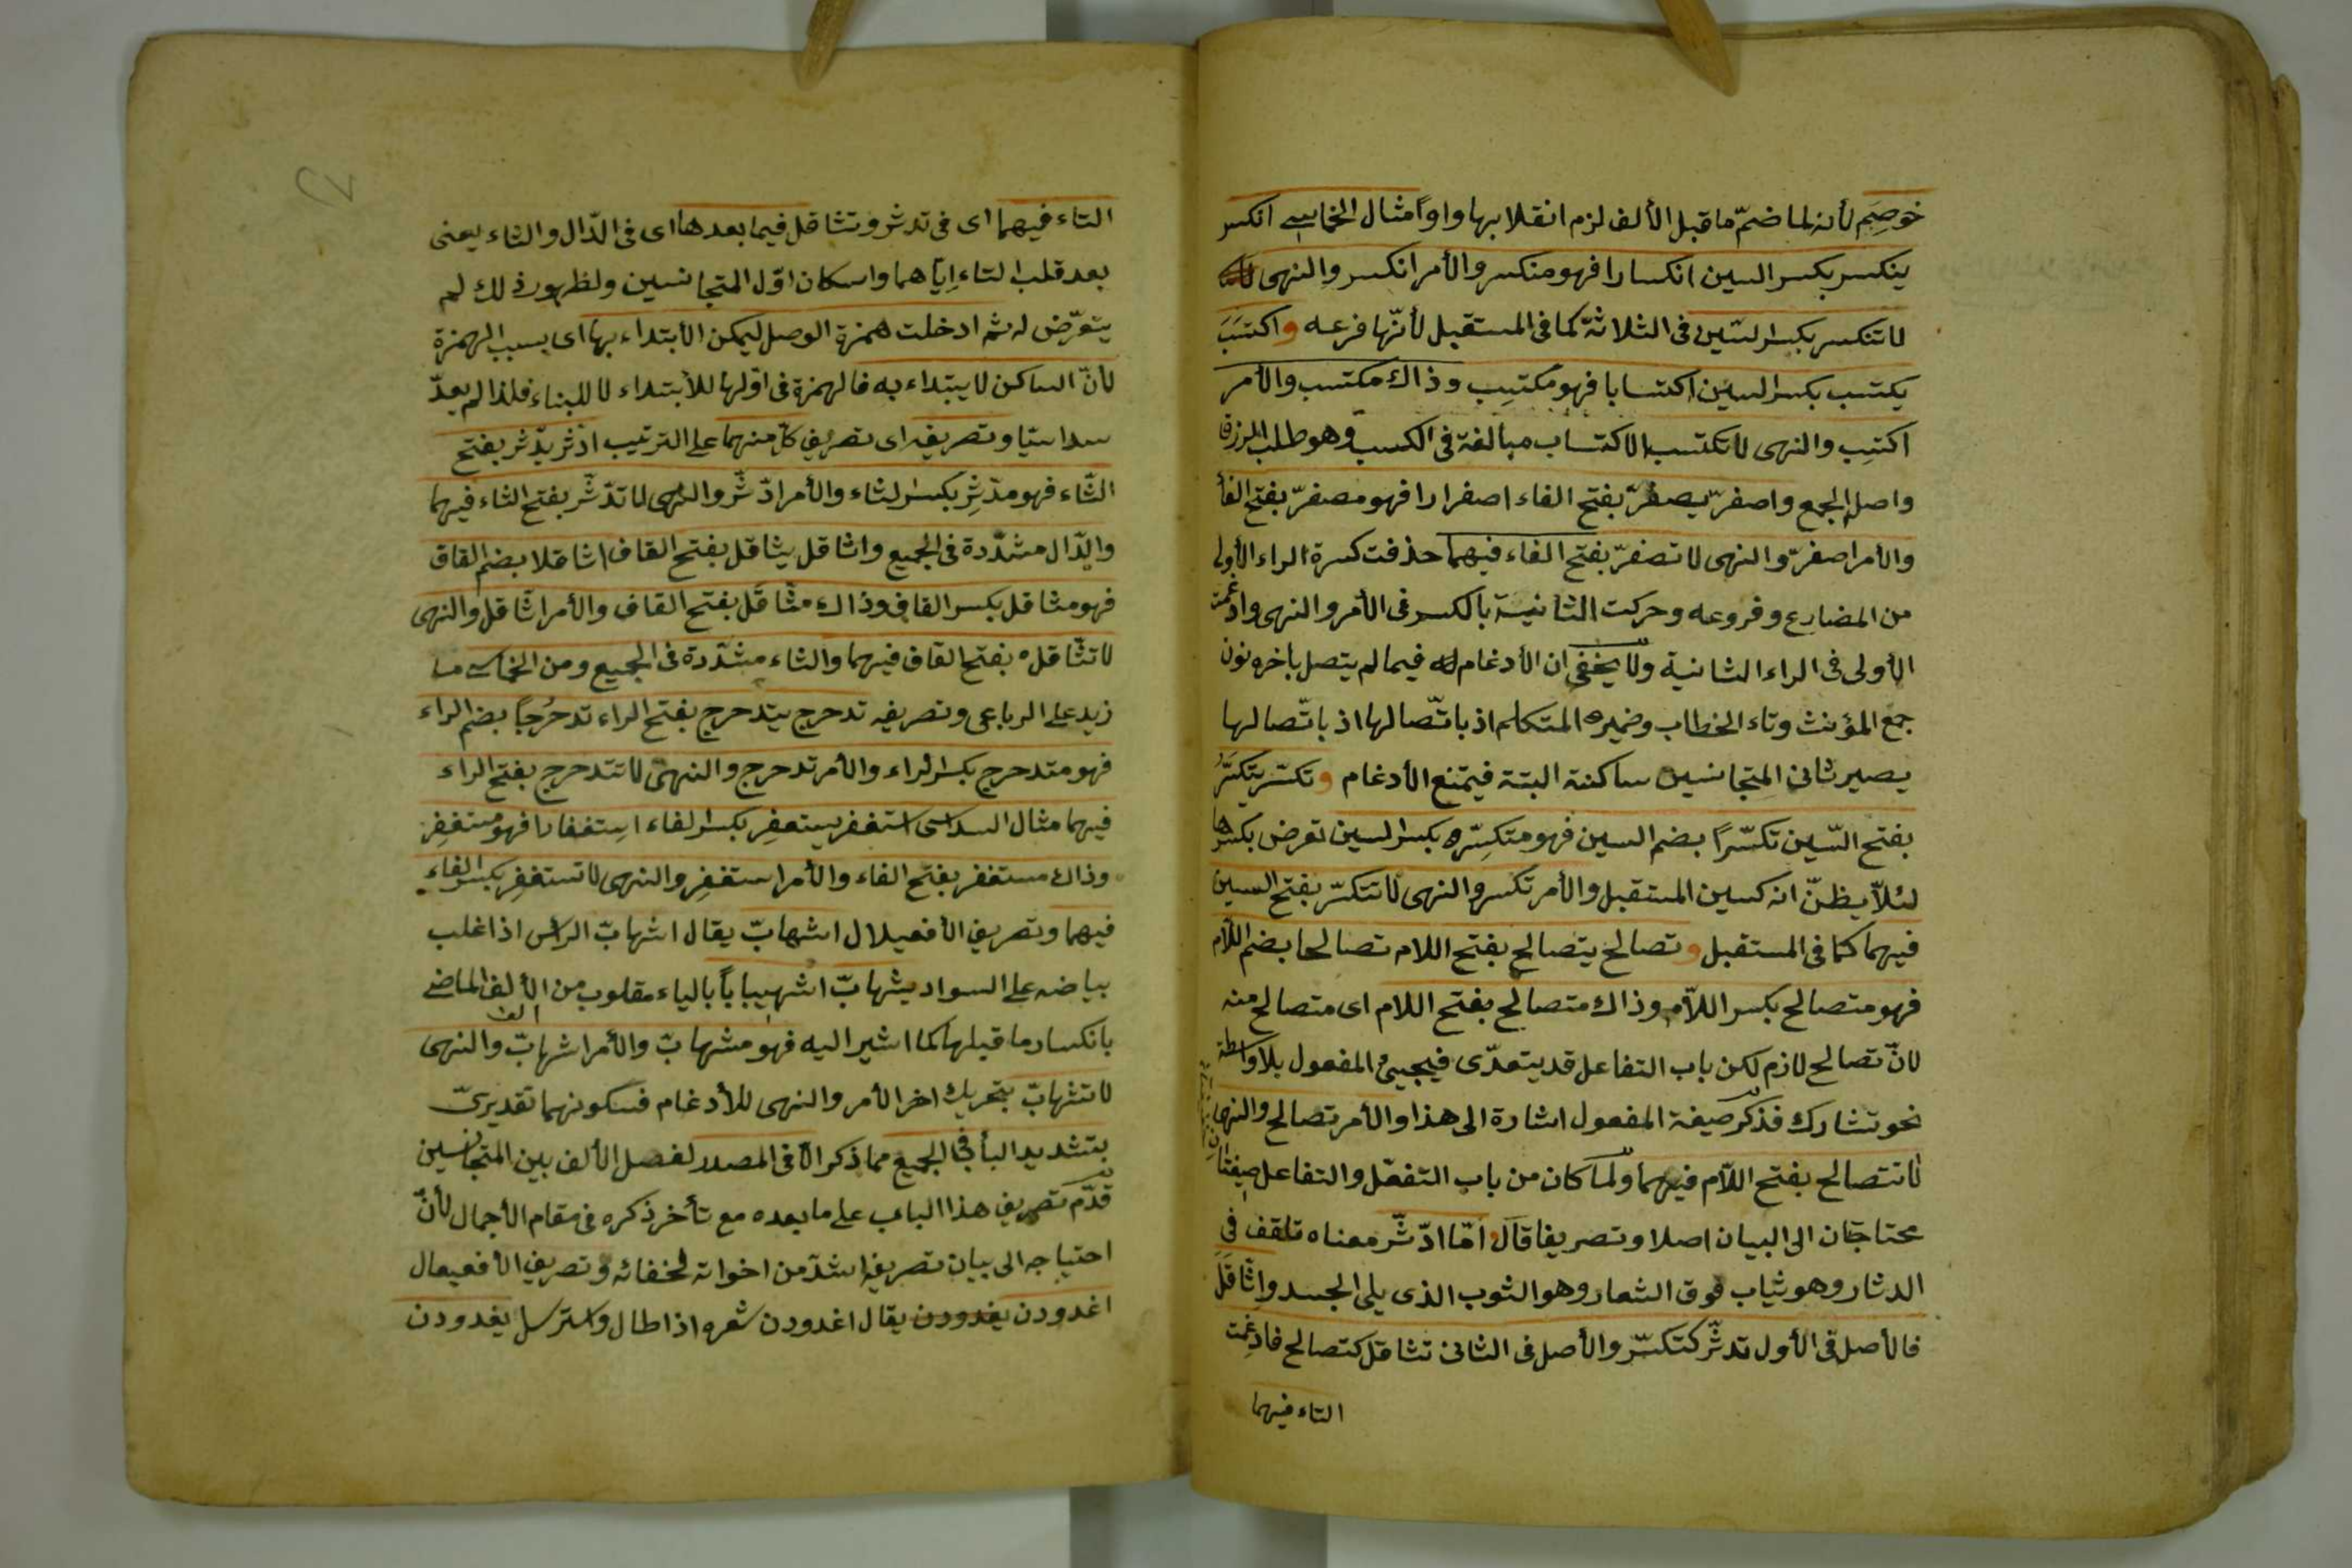 خوصِم لأنه لما ضمّ ما قبل الألف لزم انقلابها واواً مثال الخماسى انكسر
ينكسر بكسر السين انكسارا فهو منكسر والأمر انكسر والنهى
لا تنكسر بكسر السّين فى الثلاثة كما فى المستقبل لأنّها فرعه واكتسَبَ
يكتسب بكسر السين اكتسابا فهو مكتسِب وذاك مكتسب والأمر
اكتسِب والنهى لا تكتسب الاكتساب مبالغة فى الكسب وهو طلب الرزق
واصله الجمع واصفرّ يصفرّ بفتح الفاء اصفرارا فهو مصفرّ بفتح الفأ
والأمر اصفرّ والنهى لا تصفرّ بفتح الفاء فيهما حذفت كسرة الراء الأولى
من المضارع وفروعه وحركت الثانية بالكسر فى الأمر والنهى وادغمت
الأولى فى الراء الثانية ولا يخفى ان الأدغام فيما لم يتصل باخره نون
جمع المؤنث وتاء الخطاب وضميره المتكلم اذ باتّصالها اذ باتّصالها
يصير ثانى المتجانسين ساكنة البتة فيمتنع الأدغام وتكسّر يتكسَّرُ
بفتح السّين تكسّراً بضم السين فهو متكسِّره بكسر السين تعرض بكسرها
لئلاّ يظنّ انه كسين المستقبل والأمر تكسر والنهى لا تتكسّر بفتح السين
فيهما كما فى المستقبل وتصالح يتصالح بفتح اللام تصالحا بضم اللاّم
فهو متصالح بكسر اللاّم وذاك متصالح بفتح اللام اى متصالح منه
لانّ تصالح لازم لكن باب التفاعل قد يتعدّى فيجيئ المفعول بلا واسطة
نحو تشارك فذكر صيغة المفعول اشارة الى هذا والأمر تصالح والنهى
لا تتصالح بفتح اللاّم فيهما ولما كان من باب التفعّل والتفاعل صيغتان
محتاجتان الى البيان اصلا وتصريفا قال امّا ادّثّر معناه تلفف فى
الدثار وهو ثياب فوق الشعار وهو الثوب الذى يلى الجسد واثّاقَلَ
فالأصل فى الأول تدثّر كتكسّر والأصل فى الثانى تثاقل كتصالح فادغمت
التاء فيهما
التاء فيهما اى فى تدثر وتثاقل فيما بعدها اى فى الدّال والثاء يعنى
بعد قلب التاء اِيّاهما واسكان اوّل المتجانسين ولظهور ذلك لم
يتعرّض له ثم ادخلت همزة الوصل ليمكن الأبتداء بها اى بسبب الهمزة
لأنّ الساكن لا يبتداء به فالهمزة فى اوّلها للأبتداء لا للبناء فلذا لم يعدّ
سداسيّا وتصريفه اى تصريف كلّ منهما على الترتيب ادّثر يدّثر بفتح
الثّاء فهو مدّثِر بكسر الثاء والأمر ادّثّر والنهى لا تدّثّر بفتح الثاء فيهما
والدّال مشدّدة فى الجميع واثاقل يثاقل بفتح القاف اثاقلا بضم القاف
فهو مثاقل بكسر القاف وذاك مثّاقَل بفتح القاف والأمر اثّاقل والنهى
لا تثّاقل بفتح القاف فيهما والثاء مشدّدة فى الجميع ومن الخماسى ما
زيد على الرباعى وتصريفه تدحرج يتدحرج بفتح الراء تدحرُجاً بضم الراء
فهو متدحرج بكسر الراء والأمر تدحرج والنهى لا تتدحرج بفتح الراء
فيهما مثال السداسى استغفر يستغفِر بكسر الفاء اِستغفارا فهو مستغفِر
وذاك مستغفر بفتح الفاء والأمر استغفِر والنهى لا تستغفِر بكسر الفاء
فيهما وتصريف الأفعيلال اشهابّ يقال اشهابّ الرأس اذا غلب
بياضه على السواد يشهابّ اشهيباباً بالياء مقلوب من الألف الماضى
الف
بانكسار ما قبلها كما اشير اليه فهو مشهابّ والأمر اشهابّ والنهى
لا تشهابّ بتحريك اخر الأمر والنهى للأدغام فسكونهما تقديرىّ
بتشديد البأ فى الجميع مما ذكر الاّ فى المصدر لفصل الألف بين المتجانسين
قدّم تصريف هذا الباب على ما بعده مع تأخر ذكره فى مقام الأجمال لأنّ
احتياجه الى بيان تصريفه اشدّ من اخواته لخفائه وتصريف الأفعيعال
اغدودن يغدودن يقال اغدودن شعره اذا طال واسترسل يغدودن